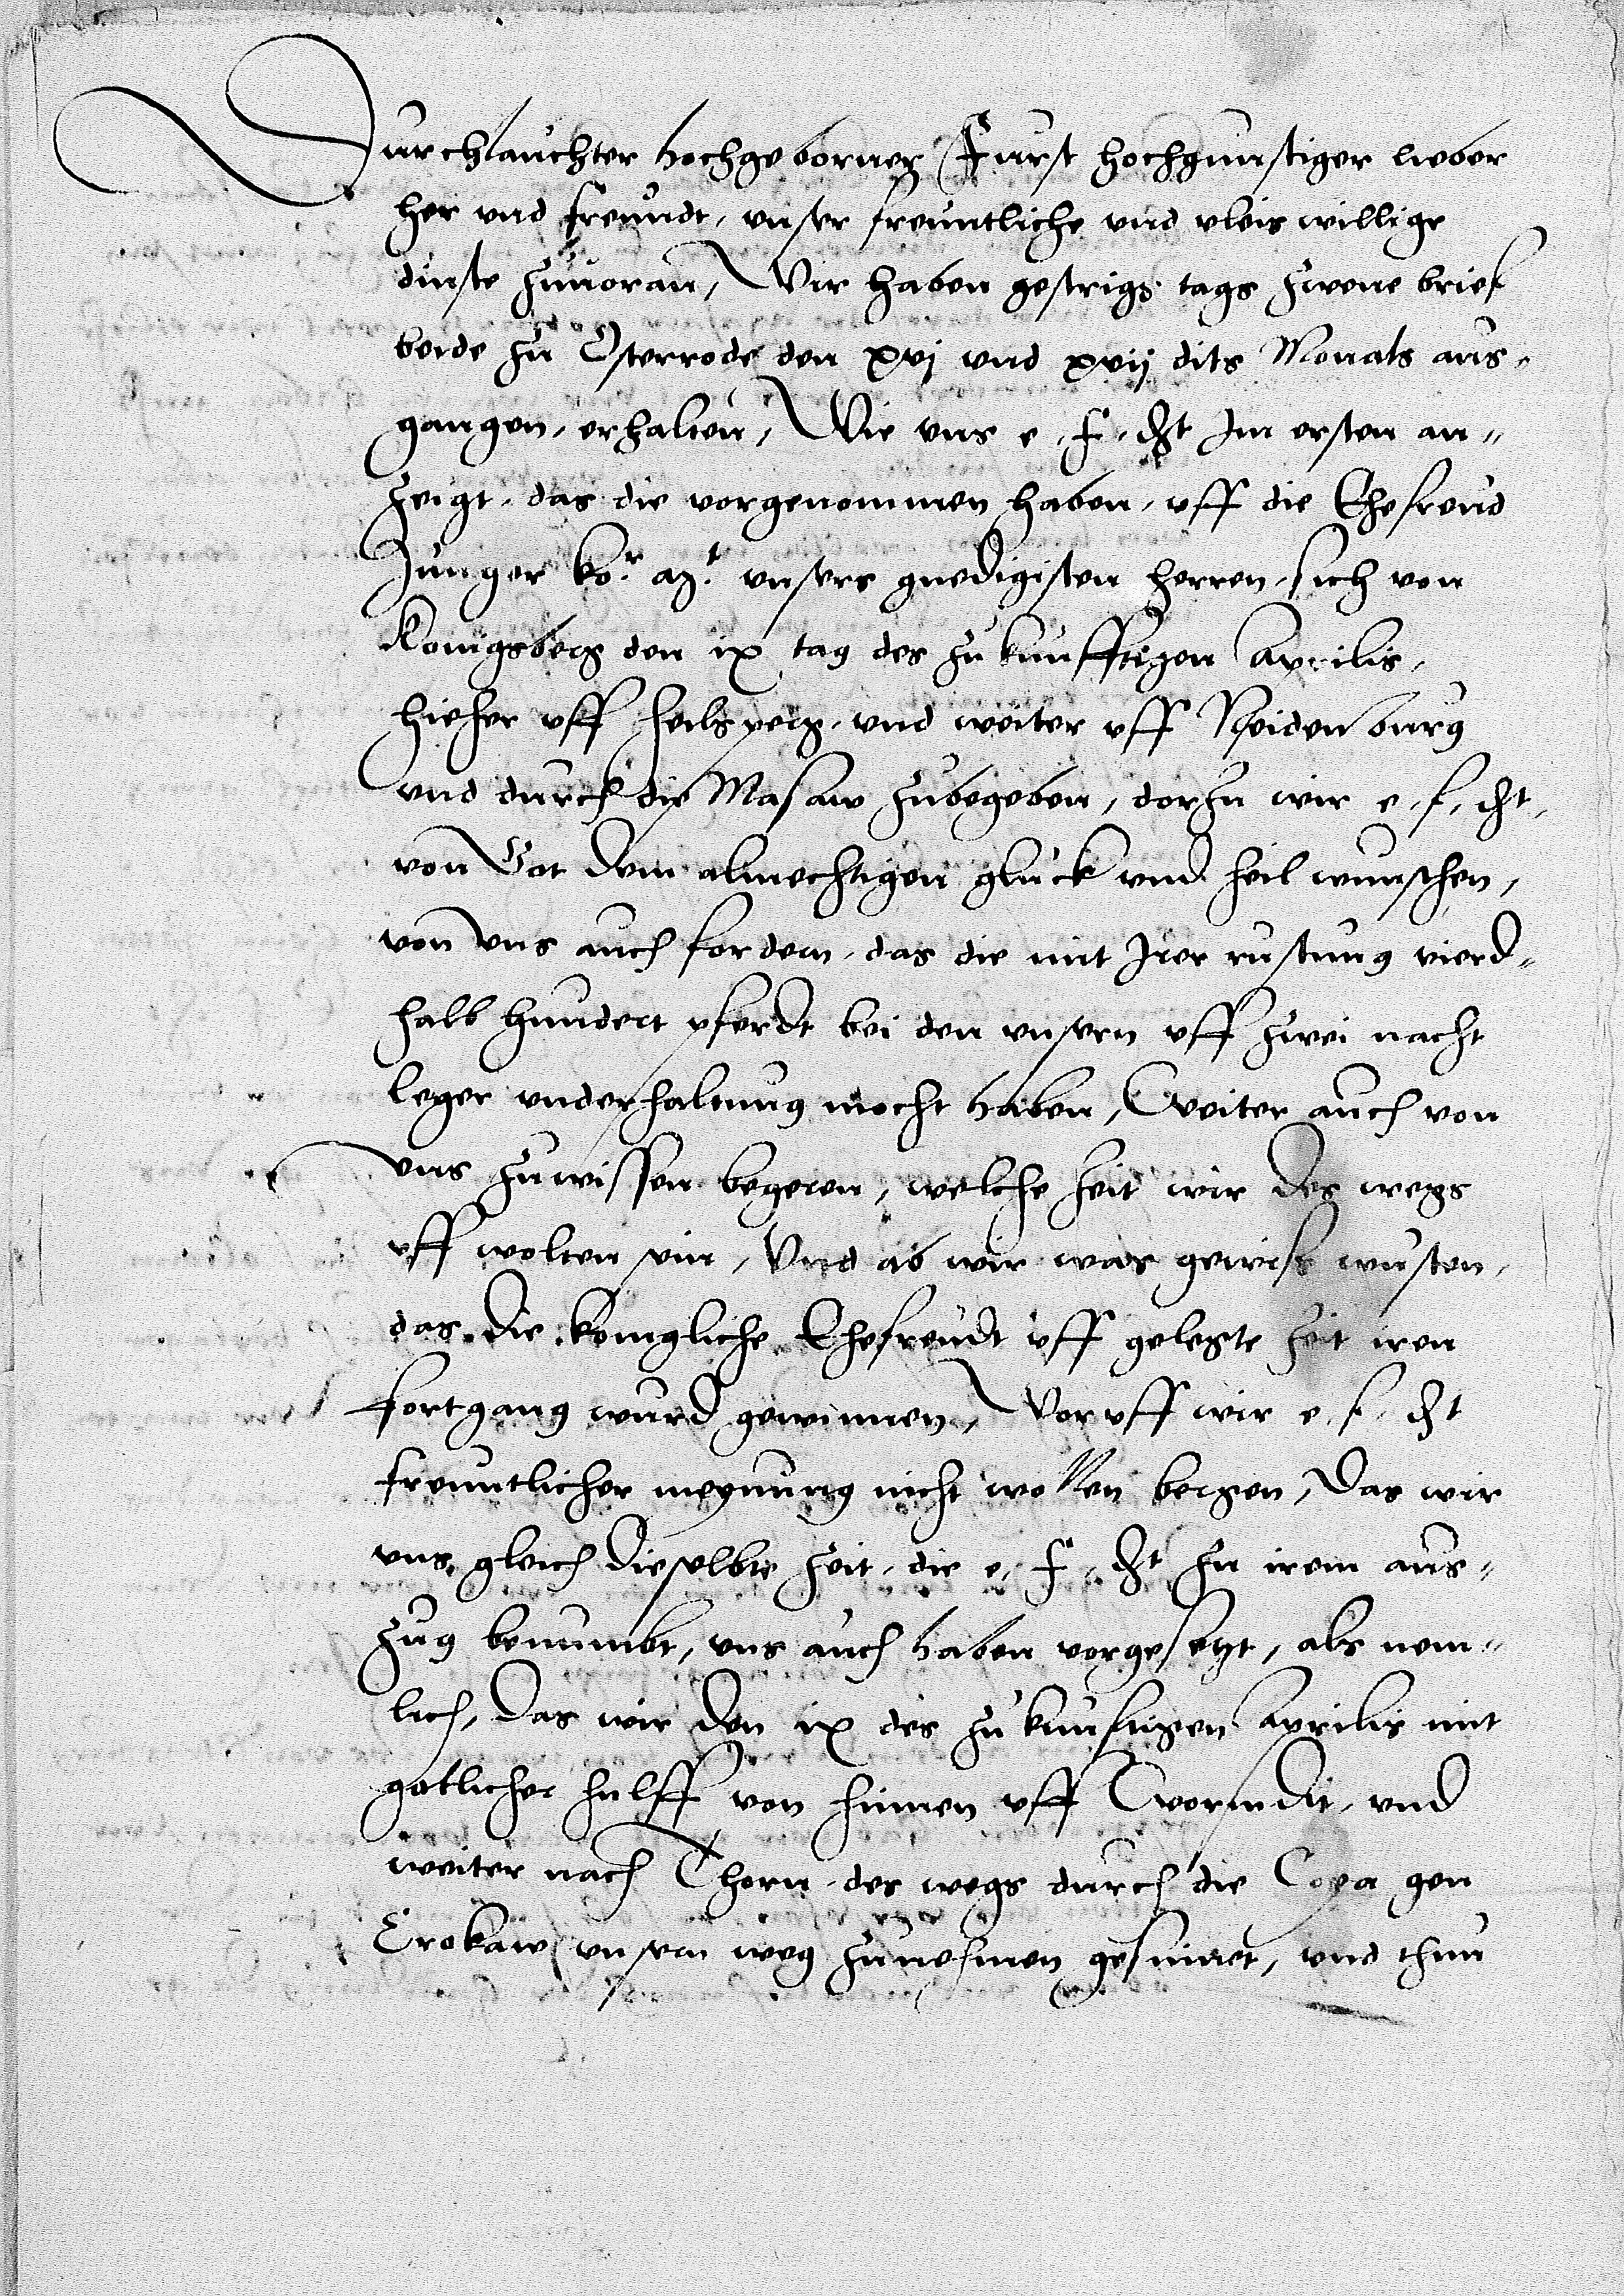 Durchlauchter hochgeborner Furst hochgunstiger lieber
her vnd freundt, vnser freuntliche vnd vleis willige
dinste zuuoran, Wir haben gestrigs tags zwene brief
beide zu Osterrode den xvj vnd xvij dits Monats aus,
gangen, erhalten, Wie vns e, f, dht Im ersten an„
zeigt, das die vorgenommen haben, vff die Ehefreud
Junger ko.r mt. vnsers gnedigisten herren, sich von
Konigsberg den ix tag des zukunfftigen Aprilis,
hieher vff heilsperg, vnd weiter vff Neidenburg
vnd durch die Masaw zubegeben, dorzu wir e, f, dht,
von Got dem almechtigen gluck vnd heil wunschen,
von vns auch fordern, das die mit Irer rustung vierd„
halb hundert pferdt bei den vnsern vff zwei nacht
leger vnderhaltung mocht haben, Weiter auch von
vns zuwissen begeren, welche zeit wir des wegs
vff wolten sein, Vnd ab wir was gewiss wusten,
das die konigliche Ehefreudt vff gelegte zeit iren
fortgang wurd gewinnen, Voruff wir e, f, dht
freuntlicher meynung nicht wollen bergen, Das wir
vns gleich dieselbte zeit, die e, f, dht zu irem aus„
zug benumbt, vns auch haben vorgesetzt, als nem„
lich, Das wir den ix des zukunftigen Aprilis mit
gotlicher hulff von hinnen vff Wormdit, vnd
weiter nach Thorn, des wegs durch die Coya gen
Crokaw vnsern weg zunehmen gesinnet, vnd thun